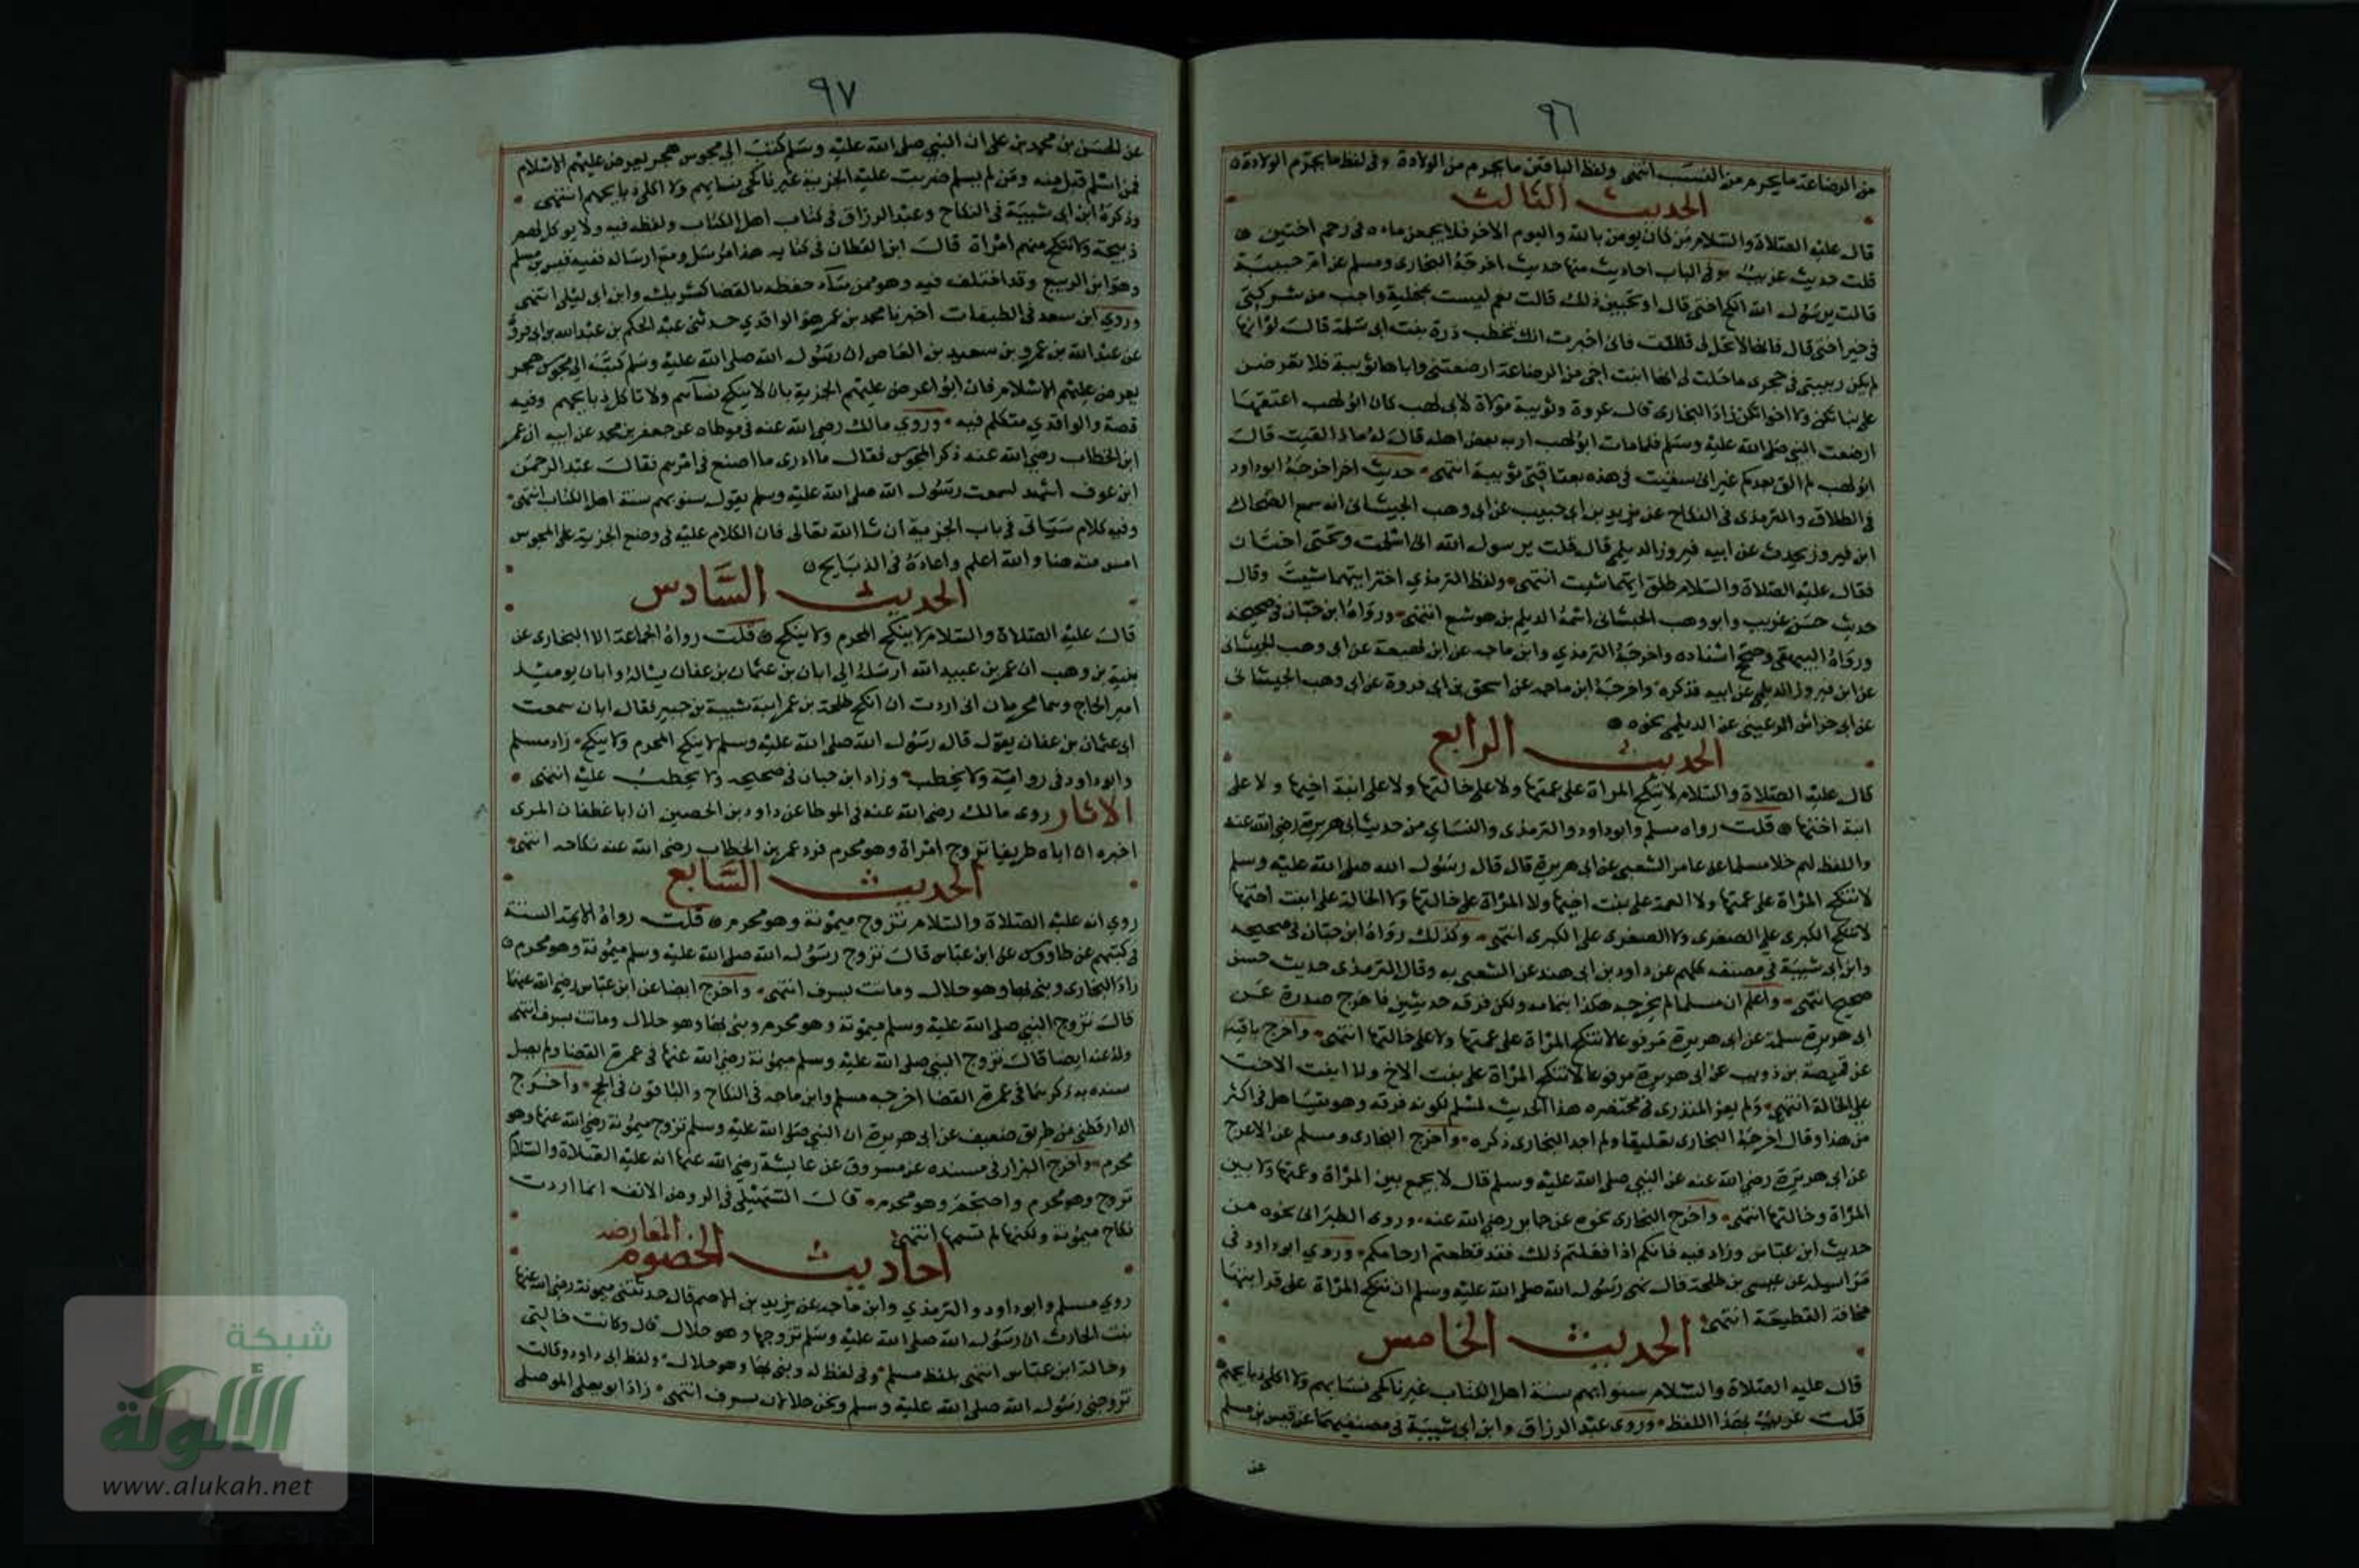 ٩٦
من الرضاعة ما يحرم من النسب انتهى ولفظ الباقين ما يحرم من الولادة وفى لفظ ما يحرم الولادة
الحديث الثالث
قال عليه الصلاة والسلام من كان يومن بالله واليوم الاخر فلا يجمعن ماءه فى رحم اختين
قلت حديث غريب وفى الباب احاديث منها حديث اخرجه البخارى ومسلم عن ام حبيبة
قالت يرسول الله انكح اختى قال او تحبين ذلك قالت نعم ليست بمخلية واحب من شركنى
فى خير اختى قال فانها لا تحل لى فقلت فانى اخبرت انك تخطب درة بنت ابى سلمة قال لو انها
لم يكن ربيبتى فى حجرى ما حلت لى انها ابنت اخى من الرضاعة ارضعتنى واباها ثويبة فلا تعرضن
على بناتكن ولا اخواتكن زاد البخارى قال عروة وثويبة مولاة لابى لهب كان ابو لهب اعتقها
ارضعت النبى صلى الله عليه وسلم فلما مات ابو لهب اريه بعض اهله قال له ماذا لقيت قال
ابو لهب لم الق بعدكم غير انى سقيت فى هذه بعتاقتى ثويبة انتهى حديث اخر اخرجه ابو داود
فى الطلاق والترمذى فى النكاح عن يزيد بن ابى حبيب عن ابى وهب الجيشانى انه سمع الضحاك
ابن فيروز يحدث عن ابيه فيروز الديلمى قال قلت يرسول الله انى اسلمت وتحتى اختان
فقال عليه الصلاة والسلام طلق ايتهما شيت انتهى ولفظ الترمذي اختر ايتهما شيت وقال
حديث حسن غريب وابو وهب الجيشانى اسمه الديلم بن هوشع انتهى ورواه ابن حبان فى صحيحه
ورواه البيهقى وصحح اسناده واخرجه الترمذي وابن ماجه عن ابن لهيعة عن ابى وهب الجيشانى
عن ابن فيروز الديلمى عن ابيه فذكره واخرجه ابن ماجه عن اسحق بن ابى فروة عن ابى وهب الجيشانى
عن ابى خراش الرعينى عن الديلمى بنحوه
الحديث الرابع
قال عليه الصلاة والسلام لا تنكح المراة على عمتها ولا على خالتها ولا على ابنة اخيها ولا على
ابنة اختها قلت رواه مسلم وابو داود والترمذى والنساي من حديث ابى هريرة رضى الله عنه
واللفظ لهم خلا مسلما عن عامر الشعبى عن ابى هريرة قال قال رسول الله صلى الله عليه وسلم
لا تنكح المراة على عمتها ولا العمة على بنت اخيها ولا المراة على خالتها ولا الخالة على ابنت اختها
لا تنكح الكبرى على الصغرى ولا الصغرى على الكبرى انتهى وكذلك رواه ابن حبان فى صحيحه
وابن ابى شيبة فى مصنفه كلهم عن داود بن ابى هند عن الشعبى به وقال الترمذى حديث حسن
صحيح انتهى واعلم ان مسلما لم يخرجه هكذا بتمامه ولكن فرقه حديثين فاخرج صدره عن
ابى هريرة سلمة عن ابى هريرة مرفوعا لا تنكح المراة على عمتها ولا على خالتها انتهى واخرج باقيه
عن قبيصة بن ذويب عن ابى هريرة مرفوعا لا تنكح المراة على بنت الاخ ولا ابنت الاخت
على الخالة انتهى ولم يعز المنذرى فى مختصره هذا الحديث لمسلم لكونه فرقه وهو يتساهل فى اكثر
من هذا وقال اخرجه البخارى تعليقا ولم اجد البخارى ذكره واخرج البخارى ومسلم عن الاعرج
عن ابى هريرة رضى الله عنه عن النبى صلى الله عليه وسلم قال لا يجمع بين المراة وعمتها ولا بين
المراة وخالتها انتهى واخرج البخارى نحوه عن جابر رضى الله عنه وروى الطبرانى نحوه من
حديث ابن عباس وزاد فيه فانكم اذا فعلتم ذلك فقد قطعتم ارحامكم وروي ابو داود فى
مراسيله عن عيسى بن طلحة قال نهى رسول الله صلى الله عليه وسلم ان تنكح المراة على قرابتها
مخافة القطيعة انتهى
الحديث الخامس
قال عليه الصلاة والسلام سنوا بهم سنة اهل الكتاب غير ناكحى نسايهم ولا اكلى ذبايحهم
قلت غريب بهذا اللفظ وروى عبد الرزاق وابن ابى شيبة فى مصنفيهما عن قيس بن مسلم
عن
٩٧
عن الحسن بن محمد بن على ان النبى صلى الله عليه وسلم كتب الى مجوس هجر يعرض عليهم الاسلام
فمن اسلم قبل منه ومن لم يسلم ضربت عليه الجزية غير ناكحى نسايهم ولا اكلى ذبايحهم انتهى
وذكره ابن ابى شيبة فى النكاح وعبد الرزاق فى كتاب اهل الكتاب ولفظه فيه ولا يوكل لهم
ذبيحة ولا تنكح منهم امراة قال ابن القطان فى كتابه هذا مرسل ومع ارساله ففيه قيس بن مسلم
وهو ابن الربيع وقد اختلف فيه وهو ممن ساء حفظه بالقضا كشريك وابن ابى ليلى انتهى
وروي ابن سعد فى الطبقات اخبرنا محمد بن عمر هو الواقدي حدثنى عبد الحكم بن عبد الله بن ابى فروة
عن عبد الله بن عمرو بن سعيد بن العاص ان رسول الله صلى الله عليه وسلم كتب الى مجوس هجر
يعرض عليهم الاسلام فان ابوا عرض عليهم الجزية بان لا ينكح نساءهم ولا تاكل ذبايحهم وفيه
قصة والواقدي متكلم فيه وروي مالك رضى الله عنه فى موطاه عن جعفر بن محمد عن ابيه ان عمر
ابن الخطاب رضى الله عنه ذكر المجوس فقال ما ادرى ما اصنع فى امرهم فقال عبد الرحمن
ابن عوف اشهد لسمعت رسول الله صلى الله عليه وسلم يقول سنوا بهم سنة اهل الكتاب انتهى
وفيه كلام سياتى فى باب الجزية ان شا الله تعالى فان الكلام عليه فى وضع الجزية على المجوس
امس منه هنا والله اعلم واعاده فى الذبايح
الحديث السادس
قال عليه الصلاة والسلام لا ينكح المحرم ولا ينكح قلت رواه الجماعة الا البخارى عن
نبيه بن وهب ان عمر بن عبيد الله ارسله الى ابان بن عثمان بن عفان يساله وابان يوميذ
امير الحاج وهما محرمان انى اردت ان انكح طلحة بن عمر ابنة شيبة بن جبير فقال ابان سمعت
ابى عثمان بن عفان يقول قال رسول الله صلى الله عليه وسلم لا ينكح المحرم ولا ينكح زاد مسلم
وابو داود فى رواية ولا يخطب وزاد ابن حبان فى صحيحه ولا يخطب عليه انتهى
الاثار روى مالك رضى الله عنه فى الموطا عن داود بن الحصين ان ابا غطفان المرى
اخبره ان اباه طريفا تزوج امراة وهو محرم فرد عمر بن الخطاب رضى الله عنه نكاحه انتهى
الحديث السابع
روي انه عليه الصلاة والسلام تزوج ميمونة وهو محرم قلت رواه الايمة الستة
فى كتبهم عن طاووس عن ابن عباس قال تزوج رسول الله صلى الله عليه وسلم ميمونة وهو محرم
زاد البخارى وبنى بها وهو حلال وماتت بسرف انتهى واخرج ايضا عن ابن عباس رضى الله عنهما
قال تزوج النبى صلى الله عليه وسلم ميمونة وهو محرم وبنى بها وهو حلال وماتت بسرف انتهى
وله عنه ايضا قال تزوج النبى صلى الله عليه وسلم ميمونة رضى الله عنها فى عمرة القضا ولم يصل
سنده به ذكرهما فى عمرة القضا اخرجه مسلم وابن ماجه فى النكاح والباقون فى الحج واخرج
الدارقطنى من طريق ضعيف عن ابى هريرة ان النبى صلى الله عليه وسلم تزوج ميمونة رضى الله عنها وهو
محرم واخرج البزار فى مسنده عن مسروق عن عايشة رضى الله عنها انه عليه الصلاة والسلام
تزوج وهو محرم واحتجم وهو محرم قال السهيلى فى الروض الانف انما اردت
نكاح ميمونة ولكنها لم تسمها انتهى
احاديث الخصوم المعارضه
روي مسلم وابو داود والترمذي وابن ماجه عن يزيد بن الاصم قال حدثتنى ميمونة رضى الله عنها
بنت الحارث ان رسول الله صلى الله عليه وسلم تزوجها وهو حلال قال وكانت خالتى
وخالة ابن عباس انتهى بلفظ مسلم وفى لفظ له وبنى بها وهو حلال ولفظ ابى داود وقالت
تزوجنى رسول الله صلى الله عليه وسلم ونحن حلالان بسرف انتهى زاد ابو يعلى الموصلى
شبكة
الألوكة
www.alukah.net